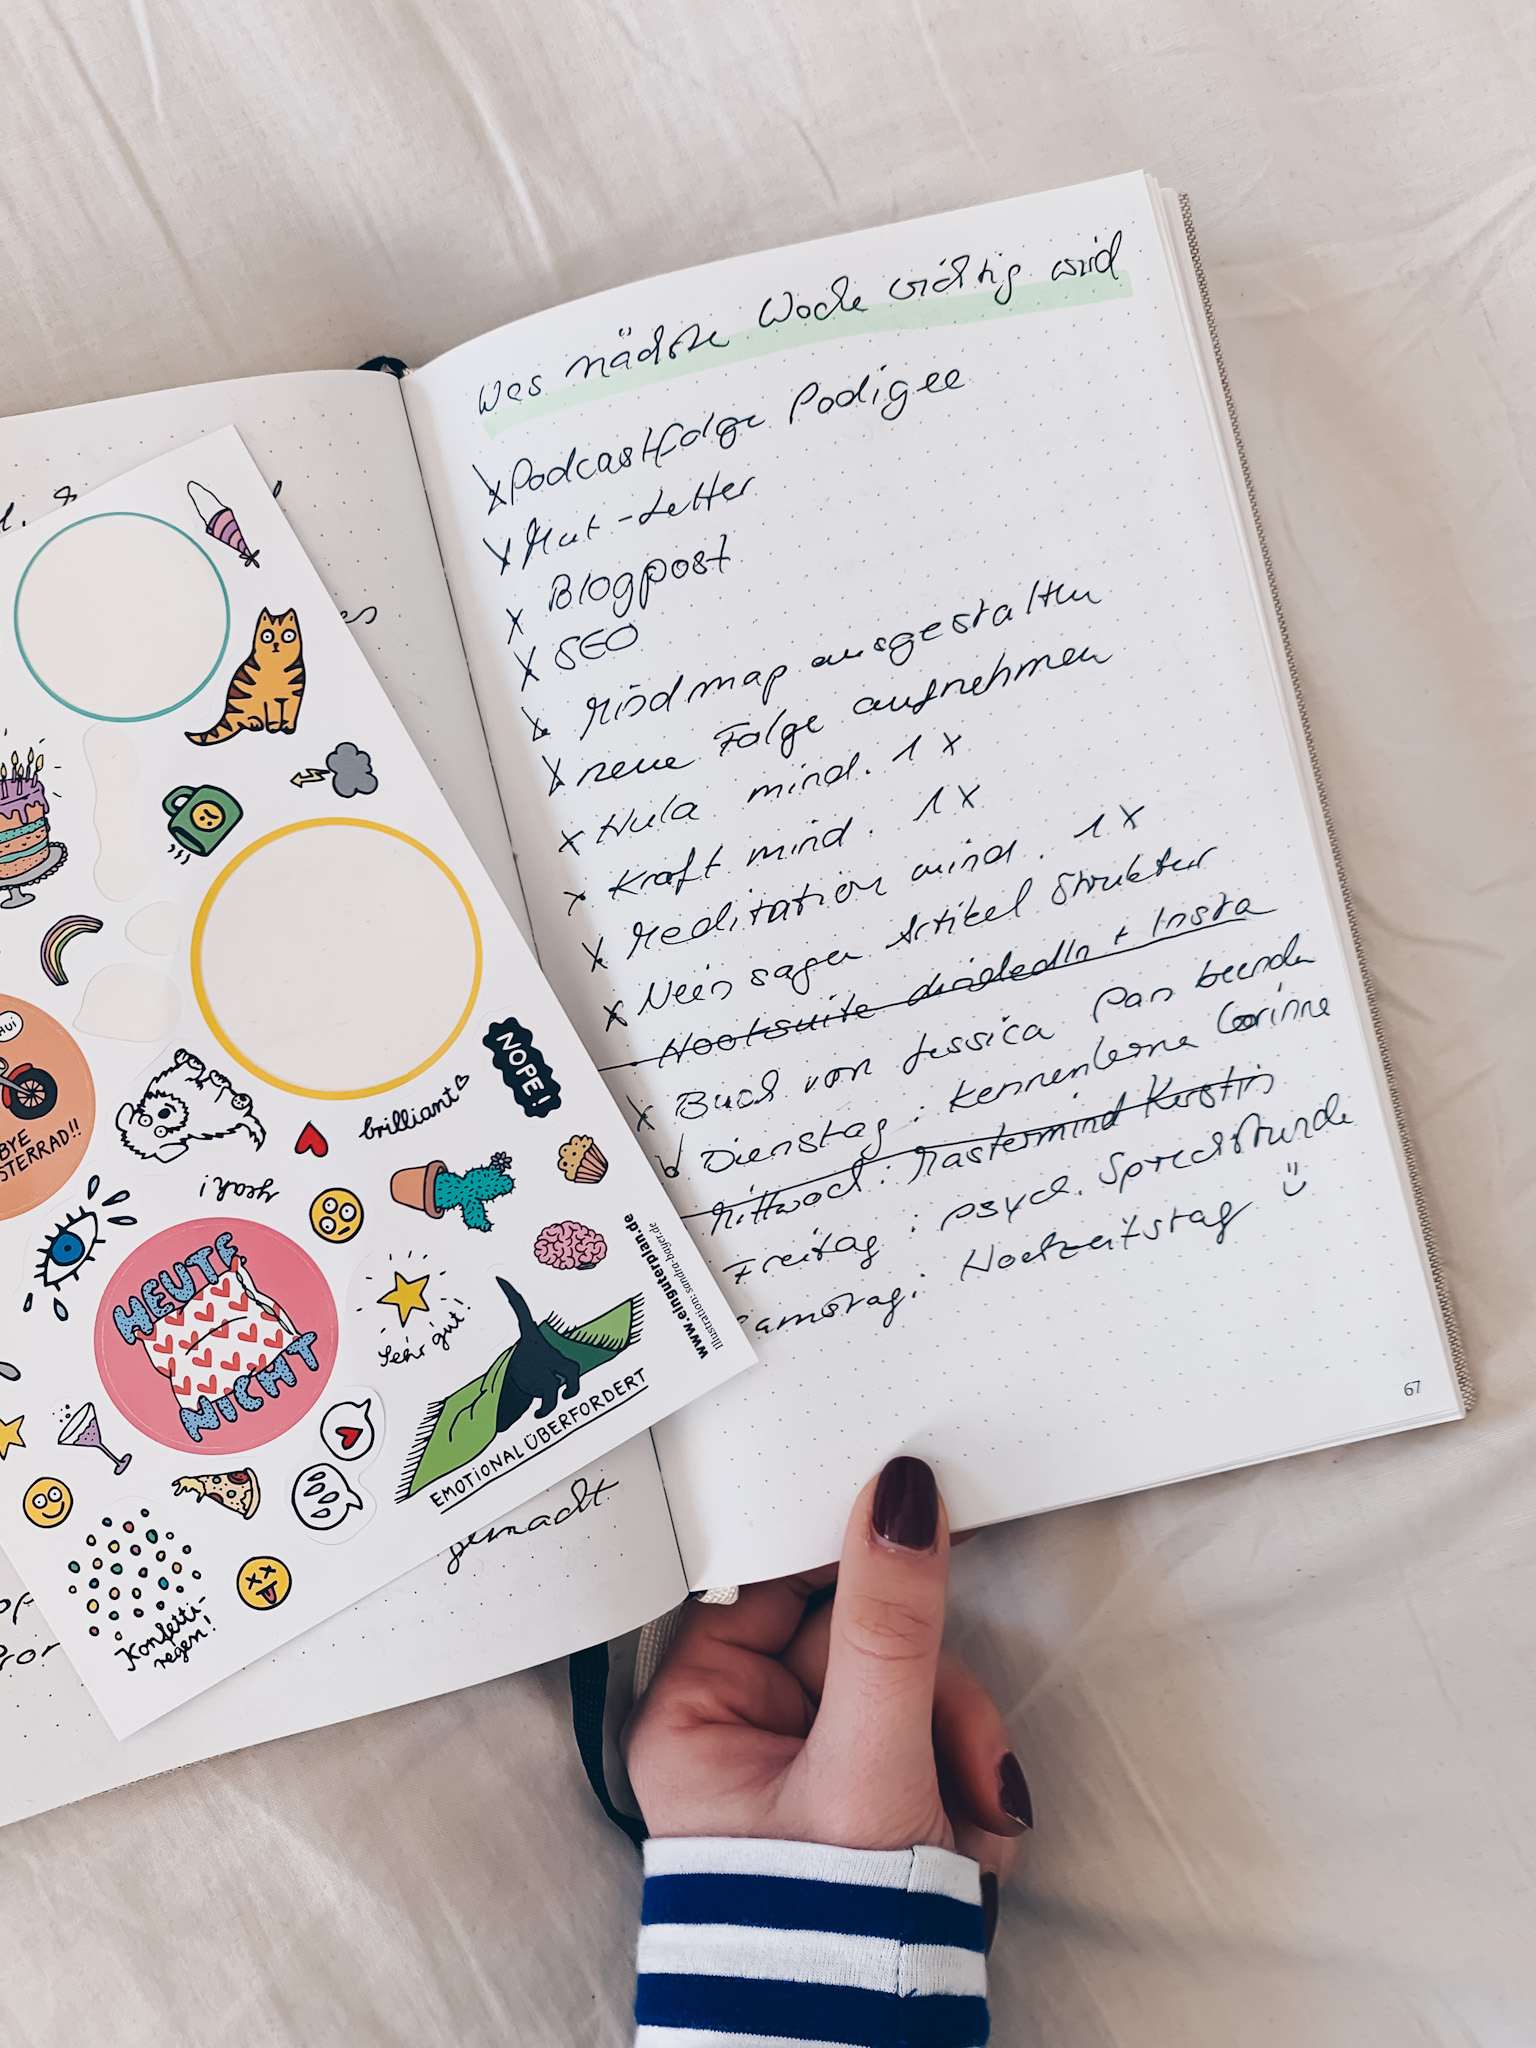 Was nächste Woche wichtig wird
x Podcastfolge Podigee
x Mut-Letter
x Blogpost
x SEO
x Mindmap ausgestalten
x neue Folge aufnehmen
x Hula mind. 1x
x Kraft mind. 1x
x Meditation mind. 1x
x Nein sagen Artikel Struktur
- Hootsuite LinkedIn + Insta
x Buch von Jessica Pan beenden
Dienstag: kennenlerne Corinne
Mittwoch: Mastermind Kerstin
Freitag: psych. Sprechstunde
amstag: Hochzeitstag ü
67
es
gemacht
NOPE!
brilliant
BYE
STERRAD!!
yeah!
HEUTE
NICHT
Sehr gut!
EMOTIONAL ÜBERFORDERT
www.einguterplan.de
Illustration: sandra-bayer.de
Konfetti-
regen!